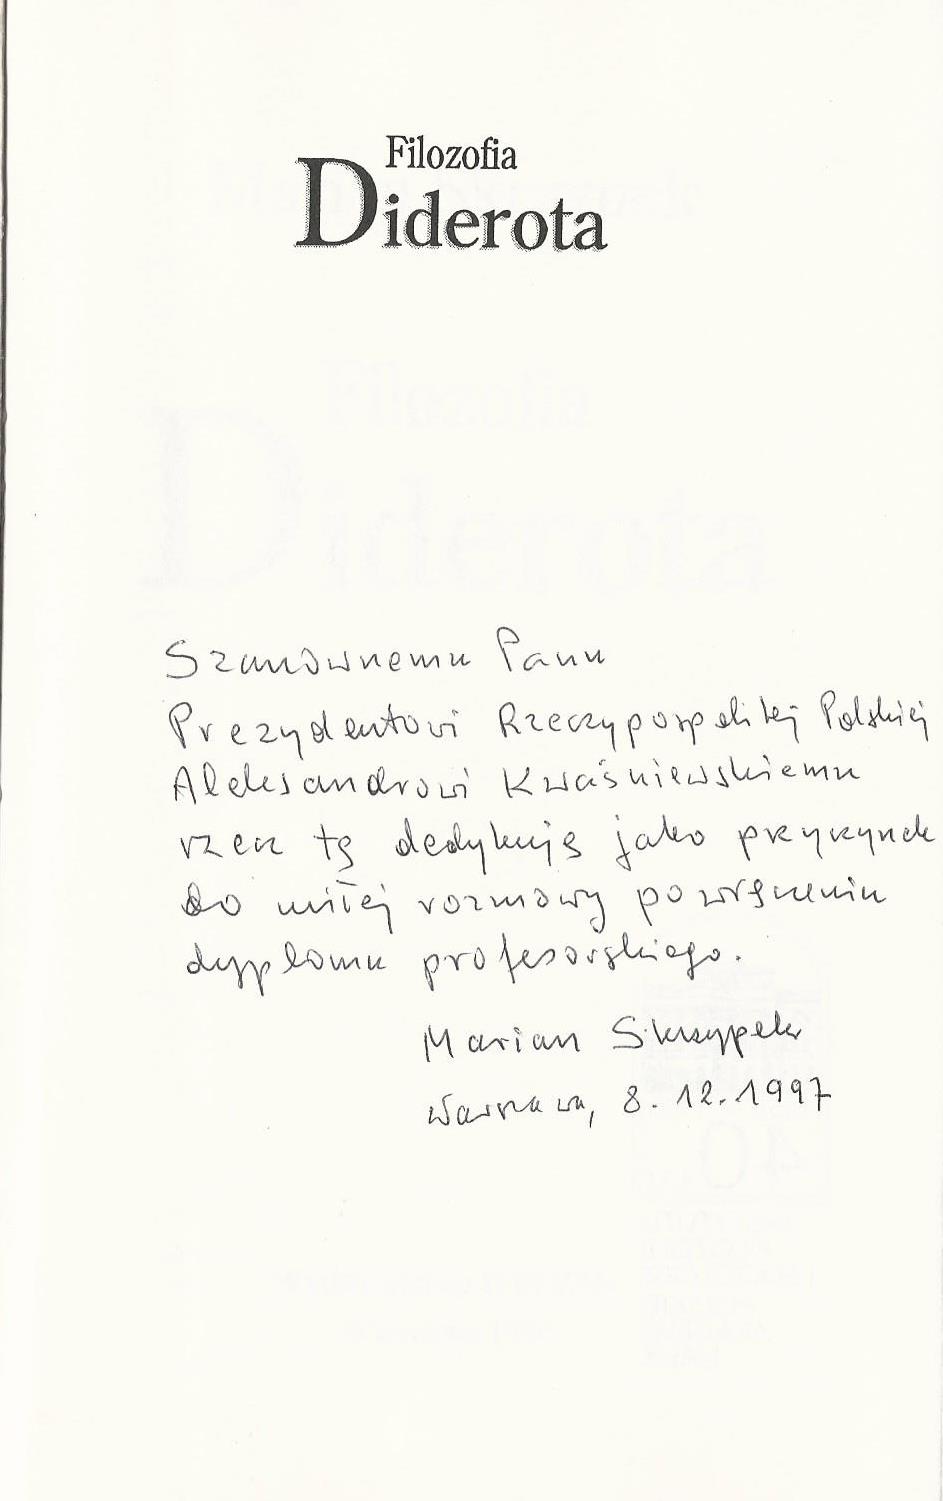 Filozofia
Diderota
Szanownemu Panu
Prezydentowi Rzeczypospolitej Polskiej
Aleksandrowi Kwaśniewskiemu
rzecz tę dedykuję jako przyczynek
do miłej rozmowy po wręczeniu
dyplomu profesorskiego.
Marian Skrzypek
Warszawa, 8.12.1997